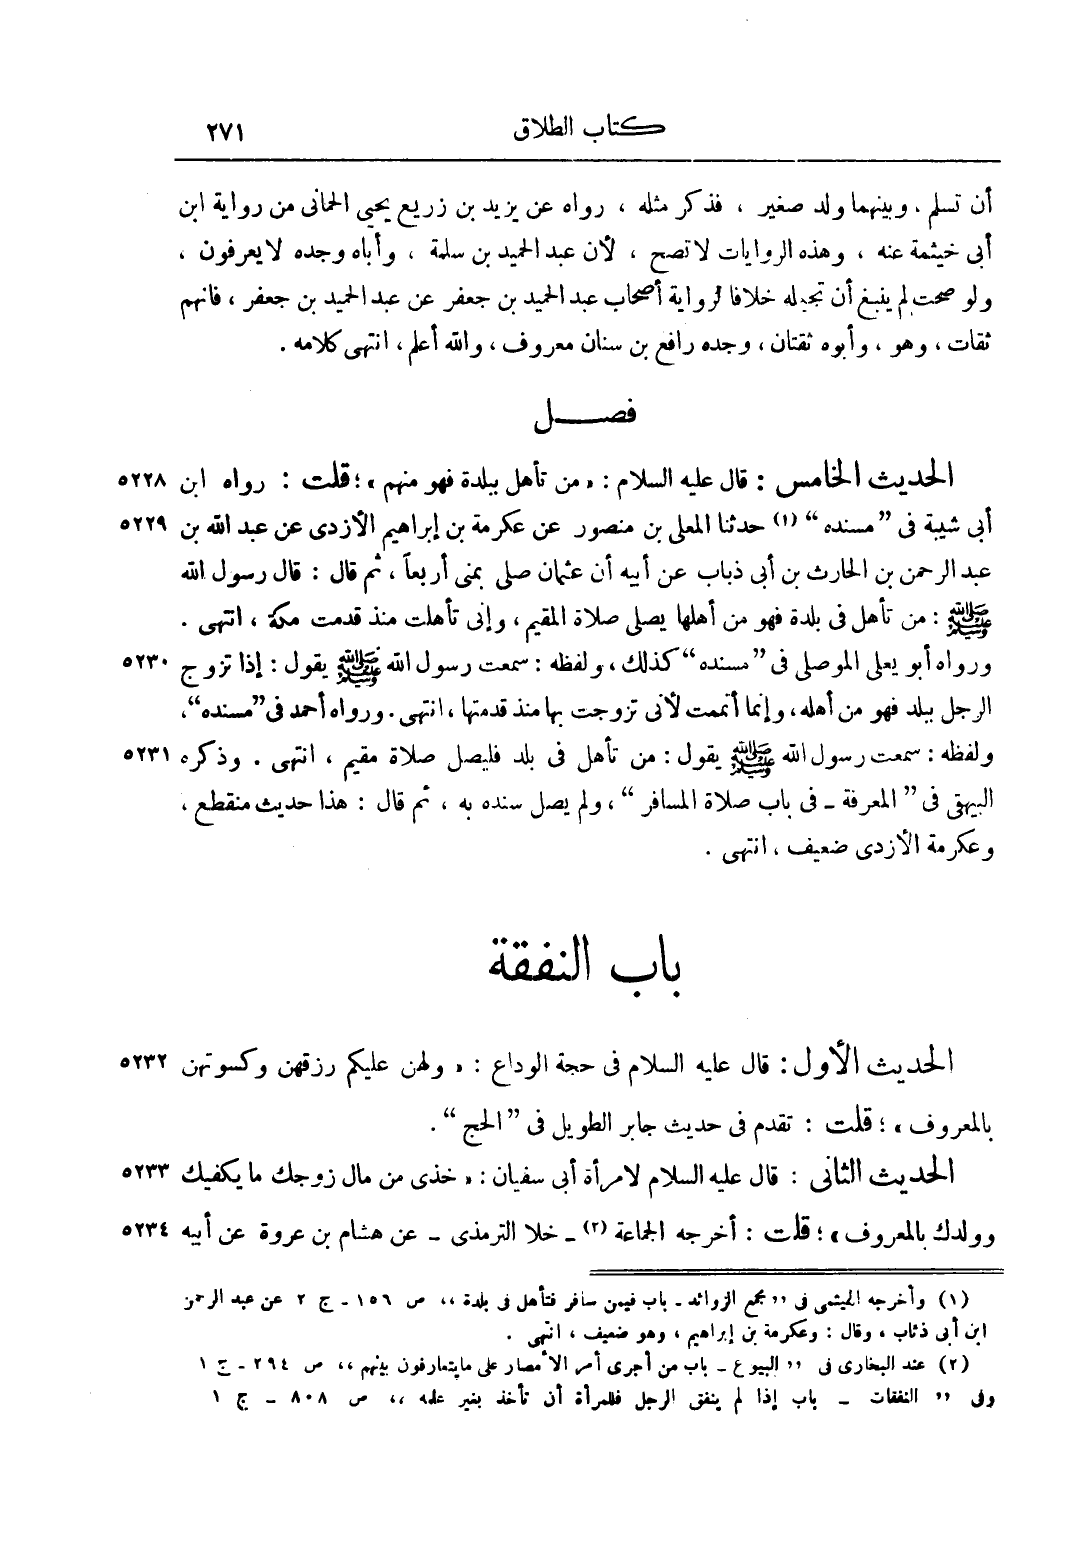 كتاب الطلاق ٢٧١
أن تسلم، وبينهما ولد صغير ، فذكر مثله ، رواه عن يزيد بن زريع يحيى الحمانى من رواية ابن
أبى خيثمة عنه ، وهذه الروايات لا تصح ، لأن عبد الحميد بن سلمة ، وأباه وجده لا يعرفون ،
ولو صحت لم ينبغ أن تجعله خلافا لرواية أصحاب عبد الحميد بن جعفر عن عبد الحميد بن جعفر ، فانهم
ثقات ، وهو ، وأبوه ثقتان ، وجده رافع بن سنان معروف ، والله أعلم ، انتهى كلامه .
فصـــل
الحديث الخامس : قال عليه السلام : « من تأهل ببلدة فهو منهم » ؛ قلت : رواه ابن ٥٢٢٨
أبى شيبة فى ”مسنده“ (١) حدثنا المعلى بن منصور عن عكرمة بن إبراهيم الأزدى عن عبد الله بن ٥٢٢٩
عبد الرحمن بن الحارث بن أبى ذباب عن أبيه أن عثمان صلى بمنى أربعاً ، ثم قال : قال رسول الله
ﷺ : من تأهل فى بلدة فهو من أهلها يصلى صلاة المقيم ، وإنى تأهلت منذ قدمت مكة ، انتهى .
ورواه أبو يعلى الموصلى فى ”مسنده“ كذلك ، ولفظه : سمعت رسول الله ﷺ يقول : إذا تزوج ٥٢٣٠
الرجل ببلد فهو من أهله ، وإنما أتممت لأنى تزوجت بها منذ قدمتها ، انتهى . ورواه أحمد فى ”مسنده“،
ولفظه : سمعت رسول الله ﷺ يقول : من تأهل فى بلد فليصل صلاة مقيم ، انتهى . وذكره ٥٢٣١
البيهقى فى ”المعرفة ـ فى باب صلاة المسافر“ ، ولم يصل سنده به ، ثم قال : هذا حديث منقطع ،
وعكرمة الأزدى ضعيف ، انتهى .
باب النفقة
الحديث الأول : قال عليه السلام فى حجة الوداع : « ولهن عليكم رزقهن وكسوتهن ٥٢٣٢
بالمعروف » ؛ قلت : تقدم فى حديث جابر الطويل فى ”الحج“ .
الحديث الثانى : قال عليه السلام لامرأة أبى سفيان : « خذى من مال زوجك ما يكفيك ٥٢٣٣
وولدك بالمعروف » ؛ قلت : أخرجه الجماعة (٢) ـ خلا الترمذى ـ عن هشام بن عروة عن أبيه ٥٢٣٤
(١) وأخرجه الهيثمى فى ”مجمع الزوائد ـ باب فيمن سافر فتأهل فى بلدة“ ص ١٥٦ ـ ج ٢ عن عبد الرحمن
ابن أبى ذئاب ، وقال : وعكرمة بن إبراهيم ، وهو ضعيف ، انتهى .
(٢) عند البخارى فى ”البيوع ـ باب من أجرى أمر الأمصار على ما يتعارفون بينهم“ ص ٢٩٤ ـ ج ١
وفى ”النفقات ـ باب إذا لم ينفق الرجل فللمرأة أن تأخذ بغير علمه“ ص ٨٠٨ ـ ج ١